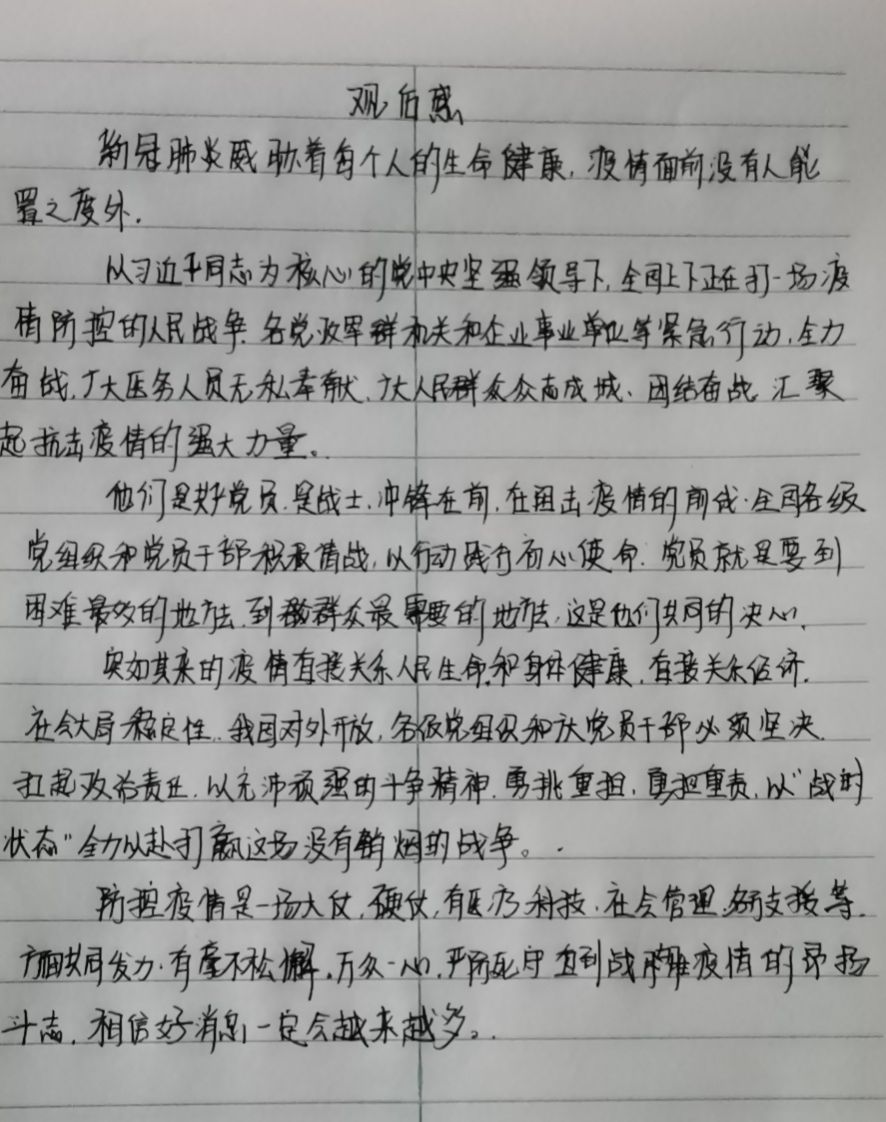 观后感
新冠肺炎威胁着每个人的生命健康,疫情面前没有人能
置之度外.
以习近平同志为核心的党中央坚强领导下,全国上下正在打一场疫
情防控的人民战争.各党政军群机关和企业事业单位等紧急行动,全力
奋战,广大医务人员无私奉献,广大人民群众众志成城、团结奋战,汇聚
起抗击疫情的强大力量。
他们是好党员,是战士,冲锋在前,在阻击疫情的前线.全国各级
党组织和党员干部积极请战,以行动践行初心使命.党员就是要到
困难最多的地方去,到群众最需要的地方去,这是他们共同的决心.
突如其来的疫情直接关系人民生命和身体健康,直接关系经济.
社会大局稳定性.我国对外开放,各级党组织和广大党员干部必须坚决
扛起政治责任,以充沛顽强的斗争精神,勇挑重担,勇担重责,以“战时
状态”全力以赴打赢这场没有硝烟的战争。
防控疫情是一场大仗,硬仗,有医疗科技.社会管理,支援等.
方面共同发力.有毫不松懈,万众一心,严防死守直到战胜疫情的昂扬
斗志,相信好消息一定会越来越多。